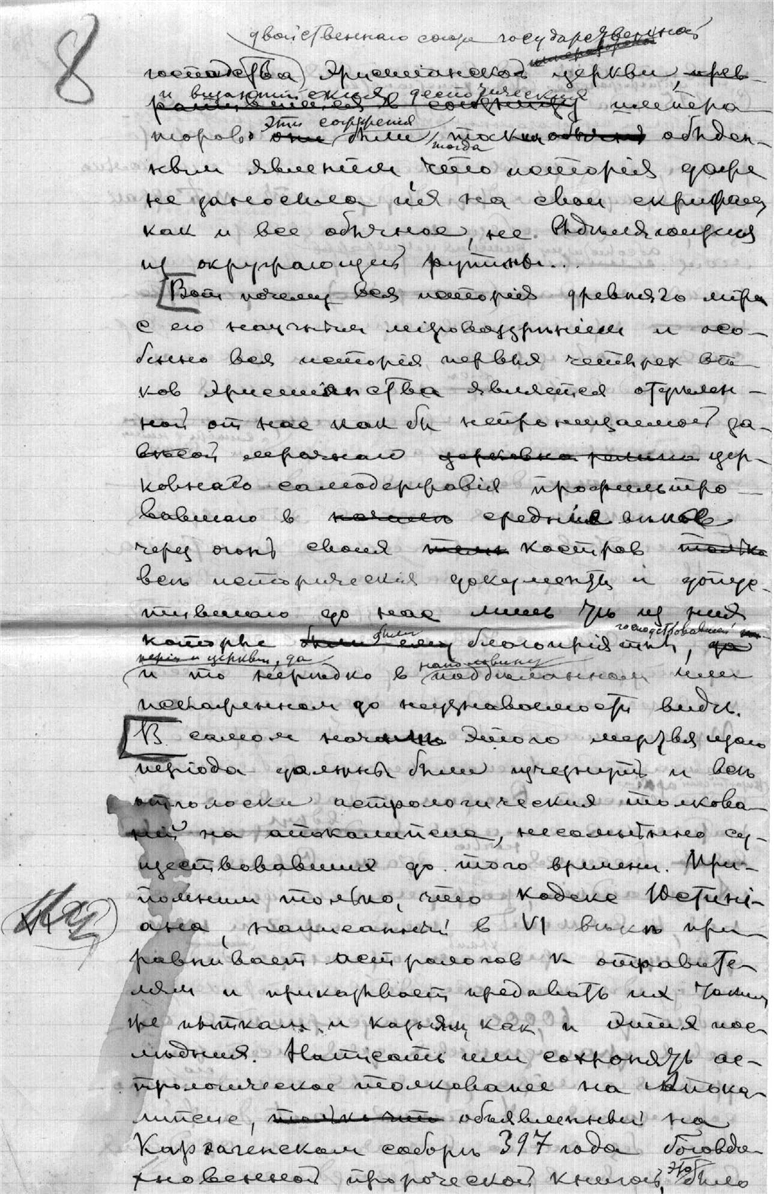 8
двойственнаго союза государственной
господства христианской церкви,
и византийския деспотическия
импера-
торов. Эти сожжения были тогда обыден-
ным явлением что история даже
не заносила их на свои скрижали
как и все обычное, не выделяющееся
из окружающей рутины...
Вот почему вся история древняго мира
с его научным мировоззрением и осо-
бенно вся история первых четырех ве-
ков христианства является отделен-
ной от нас как бы непроницаемой за-
весой мрачнаго цер-
ковнаго самодержавия профильтро-
вавшаго в средние века
через огонь своих костров
все исторические документы и допус-
тившаго до нас лишь те из них
которые были благоприятны господствовавшей
церкви, да
и то нередко в наполовину подделанном или
искаженном до неузнаваемости виде.
В самом начале этого мертвящаго
периода должны были исчезнуть и все
отголоски астрологических толкова-
ний на апокалипсис, несомненно су-
ществовавшия до того времени. При-
помним только, что кодекс Юстини-
ана, написанный в VI веке при-
равнивает астрологов к отравите-
лям и приказывает предавать их таким
же пыткам и казням как и этих пос-
ледних. Написать или сохранять ас-
трологическое толкование на Апока-
липсис, объявленный на
Карфагенском соборе 397 года боговдо-
хновенной пророческой книгой, это было